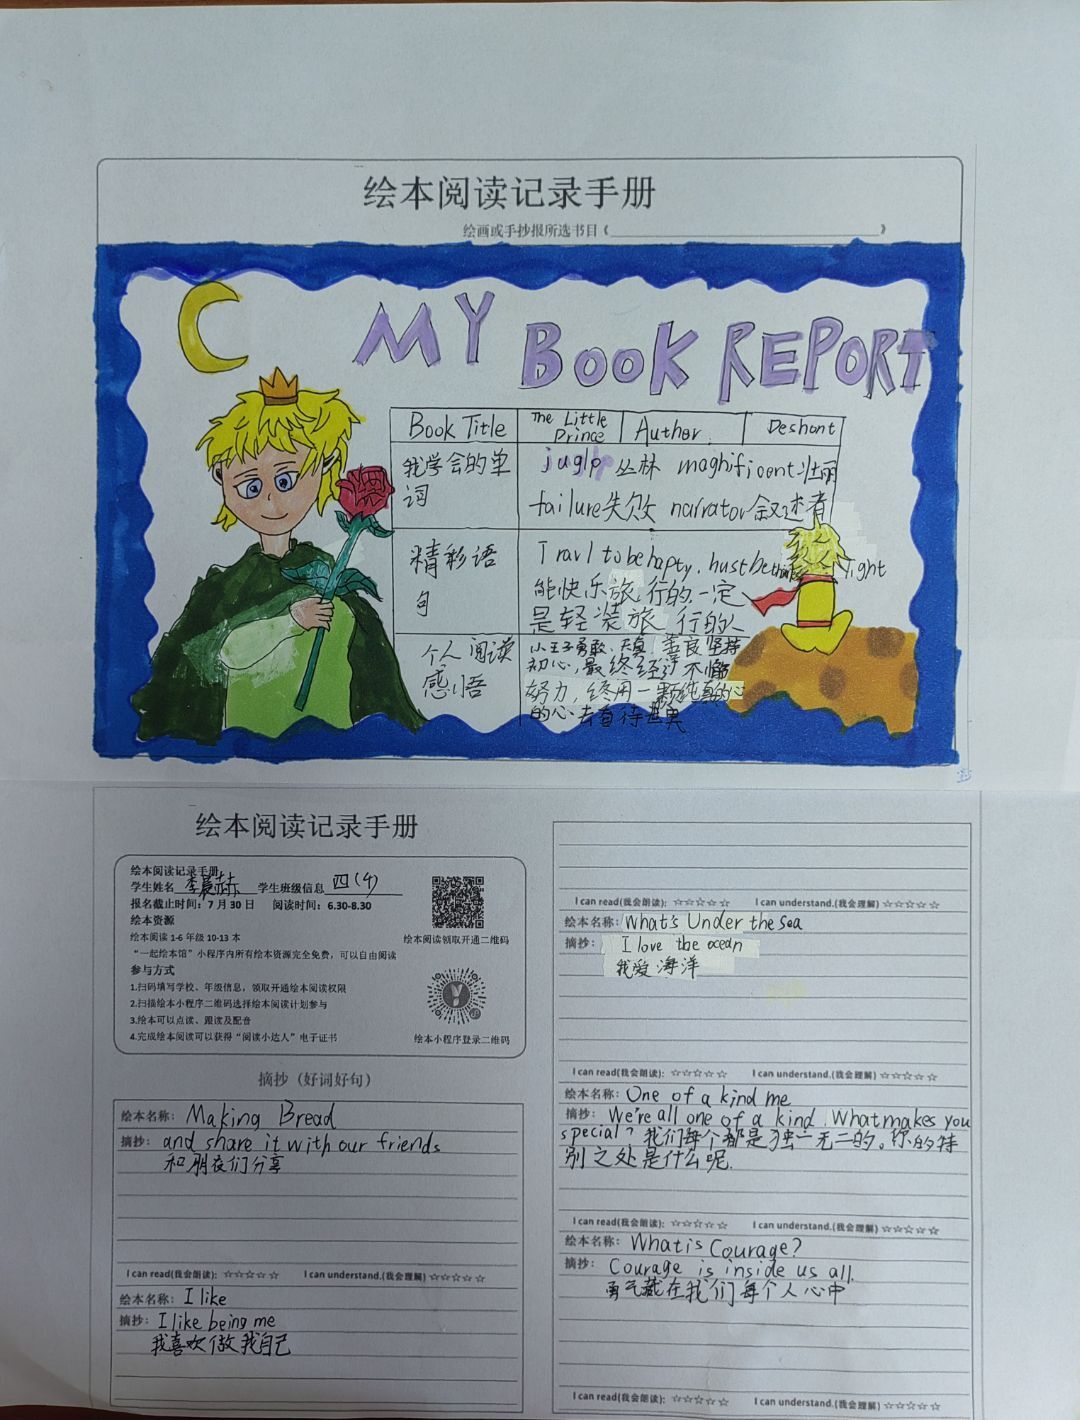 绘本阅读记录手册
绘画或手抄报所选书目《 》
MY BOOK REPORT
Book Title The Little Prince Author. Deshant
我学会的单词 juglp 丛林 maghificent壮丽
failure失败 narrator叙述者
精彩语句 Travl to be happy, hust be light
能快乐旅行的一定
是轻装旅行的人
个人阅读感悟 小王子勇敢、天真、善良坚持
初心,最终经过不懈
努力,终用一颗纯真的心
的心去看待世界
绘本阅读记录手册
绘本阅读记录手册
学生姓名 李晨 学生班级信息 四(4)
报名截止时间:7月30日 阅读时间:6.30-8.30
绘本资源
绘本阅读1-6年级10-13本
“一起绘本馆”小程序内所有绘本资源完全免费,可以自由阅读
参与方式
1.扫码填写学校、年级信息,领取开通绘本阅读权限
2.扫描绘本小程序二维码选择绘本阅读计划参与
3.绘本可以点读、跟读及配音
4.完成绘本阅读可以获得“阅读小达人”电子证书
绘本阅读领取开通二维码
绘本小程序登录二维码
摘抄(好词好句)
绘本名称: Making Bread
摘抄: and share it with our friends
和朋友们分享
I can read(我会朗读): ☆☆☆☆☆ I can understand.(我会理解)☆☆☆☆☆
绘本名称: I like
摘抄: I like being me
我喜欢做我自己
I can read(我会朗读): ☆☆☆☆☆ I can understand.(我会理解)☆☆☆☆☆
绘本名称: What's Under the Sea
摘抄: I love the ocean
我爱海洋
I can read(我会朗读): ☆☆☆☆☆ I can understand.(我会理解)☆☆☆☆☆
绘本名称: One of a kind me
摘抄: We're all one of a kind. What makes you
special? 我们每个都是独一无二的。你的特
别之处是什么呢.
I can read(我会朗读): ☆☆☆☆☆ I can understand.(我会理解)☆☆☆☆☆
绘本名称: What is Courage?
摘抄: Courage is inside us all.
勇气藏在我们每个人心中
I can read(我会朗读): ☆☆☆☆☆ I can understand.(我会理解)☆☆☆☆☆